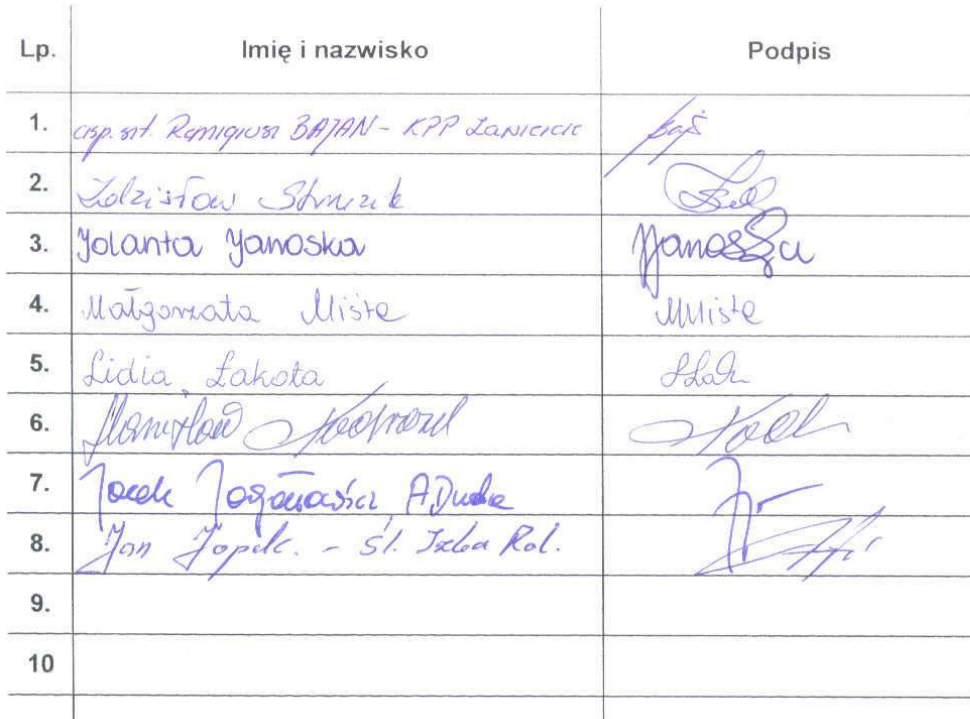 Lp. Imię i nazwisko Podpis
1. asp. szt. Remigiusz BAJAN - KPP Zawiercie
2. Zdzisław
3. Jolanta Janoska Janoska
4. Małgorzata Miśta MMiśta
5. Lidia Łakota
6. Stanisław
7. Jacek A. Duda
8. Jan Jopek. - Śl. Izba Rol.
9.
10